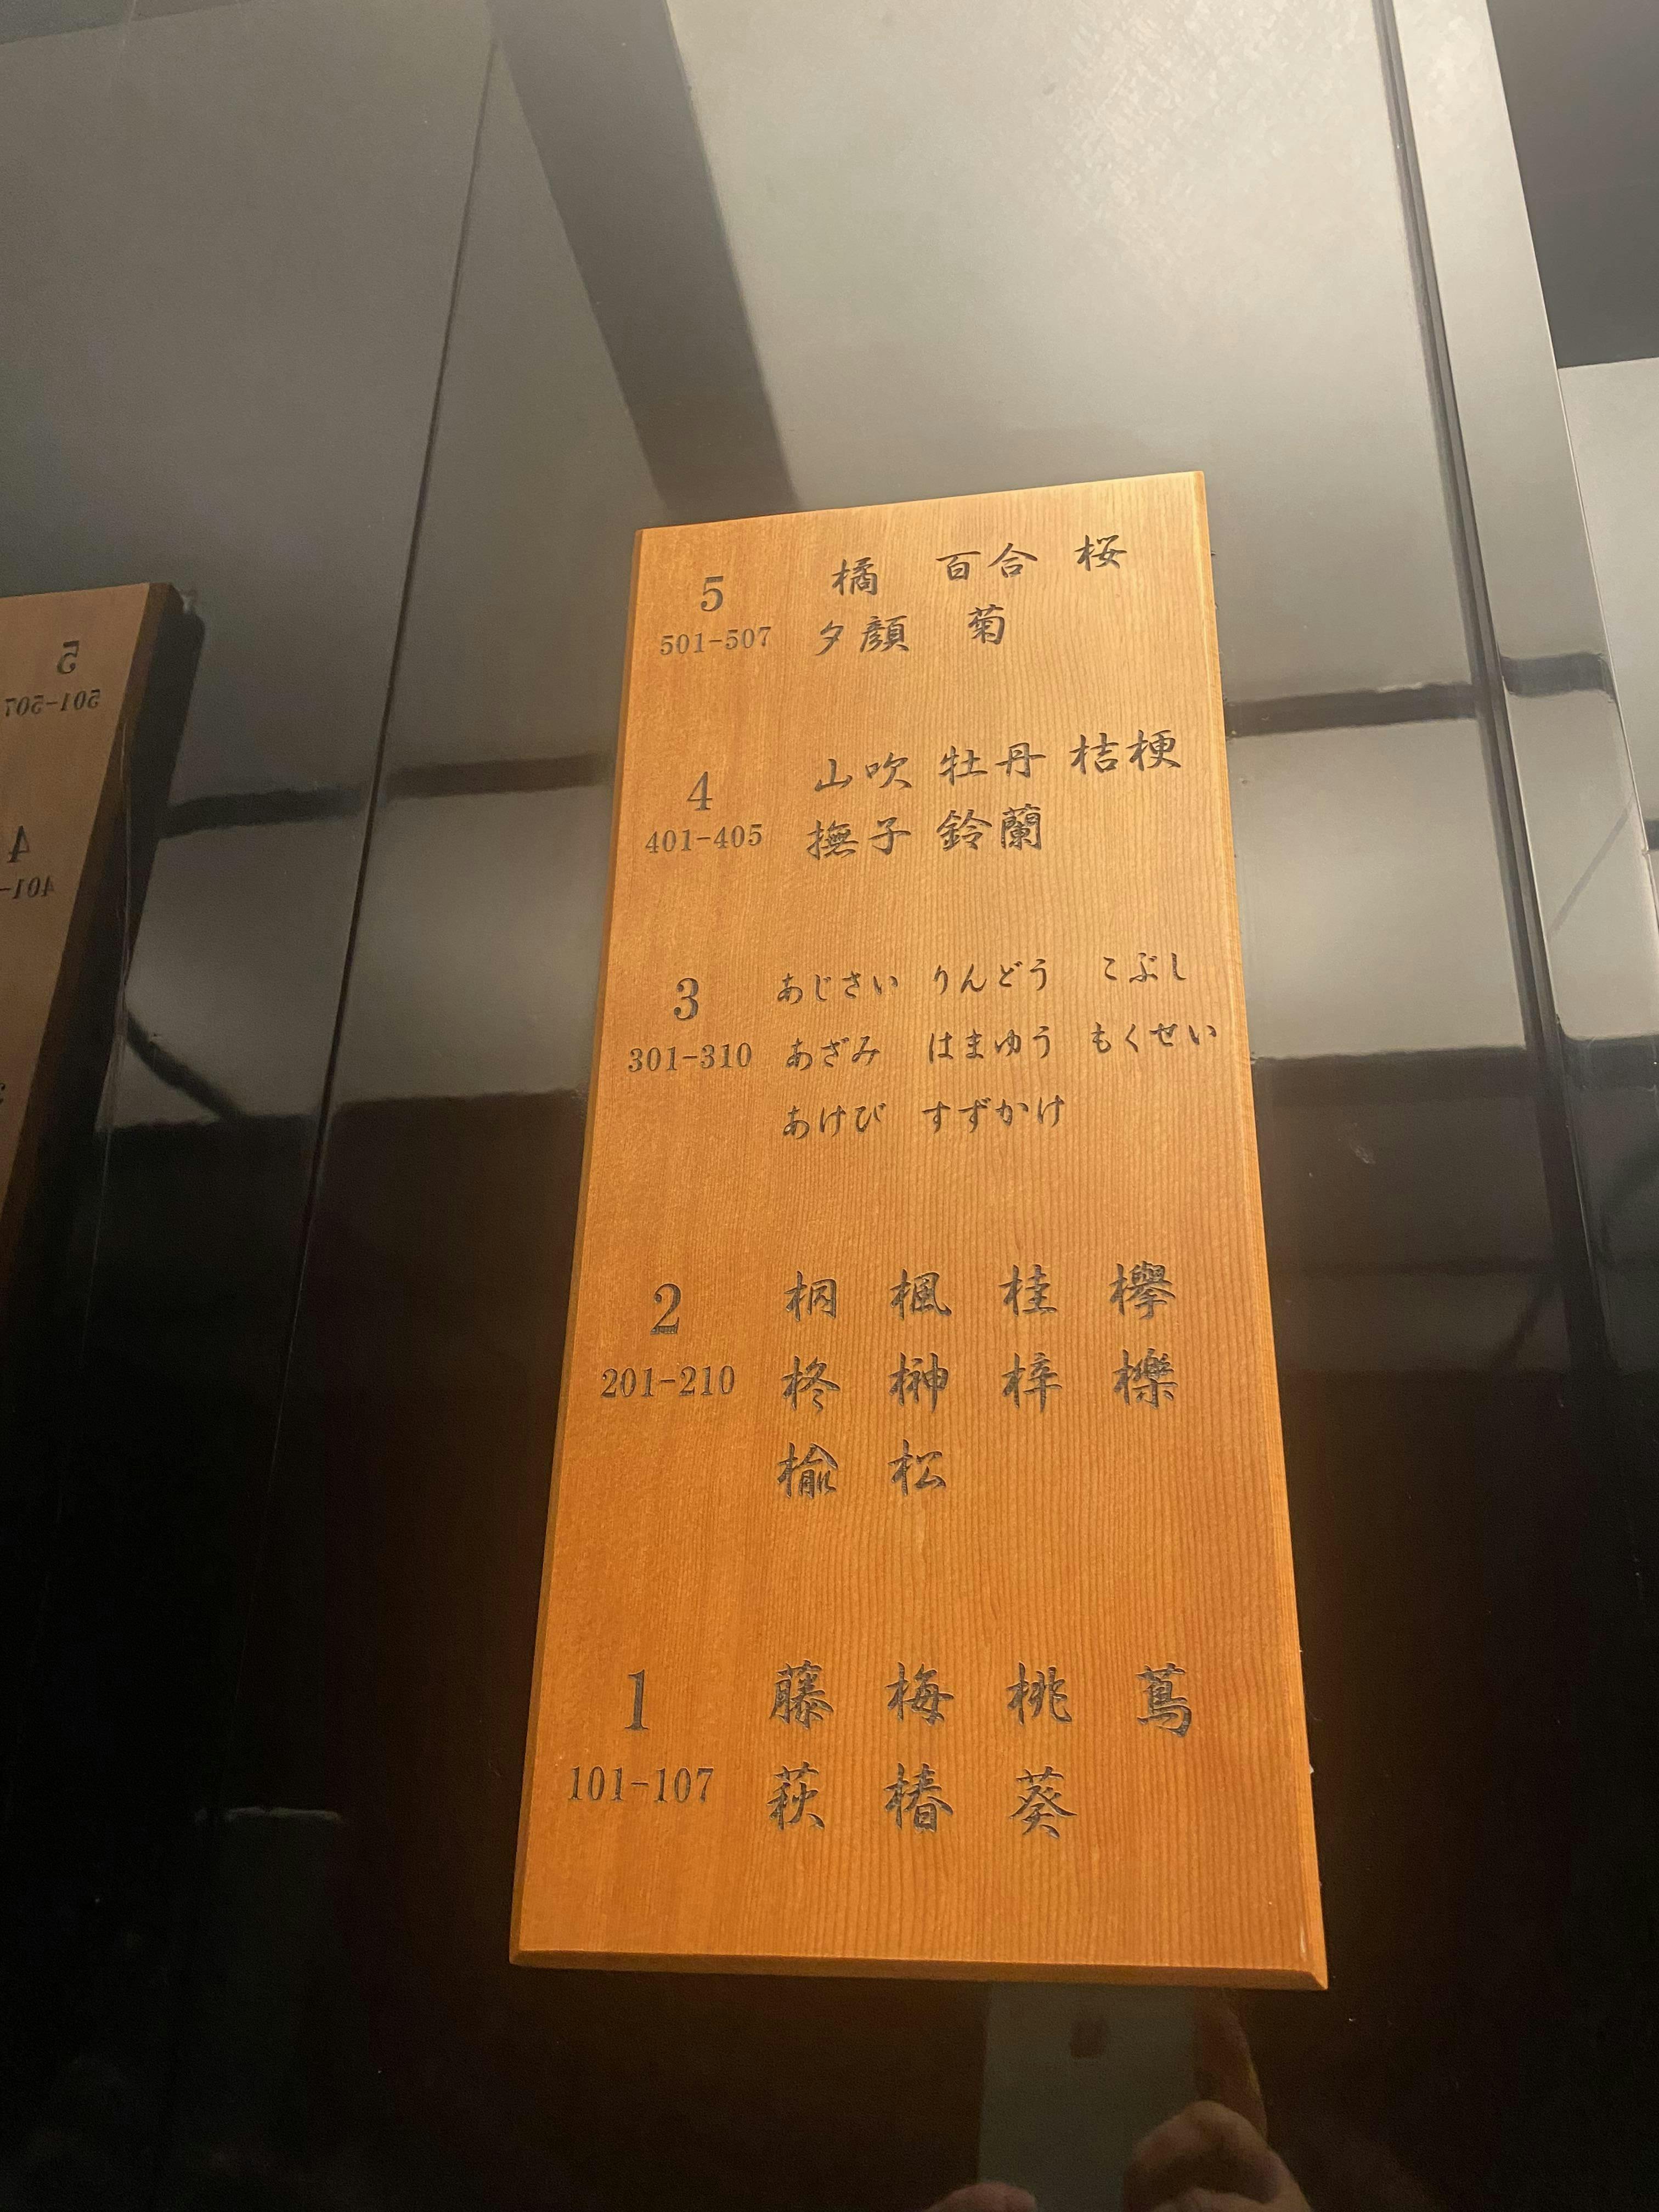 5 橘 百合 桜
501-507 夕顔 菊
4 山吹 牡丹 桔梗
401-405 撫子 鈴蘭
3 あじさい りんどう こぶし
301-310 あざみ はまゆう もくせい
あけび すずかけ
2 桐 楓 桂 欅
201-210 柊 榊 梓 櫟
楡 松
1 藤 梅 桃 蔦
101-107 萩 椿 葵
5
501-507
4
401-